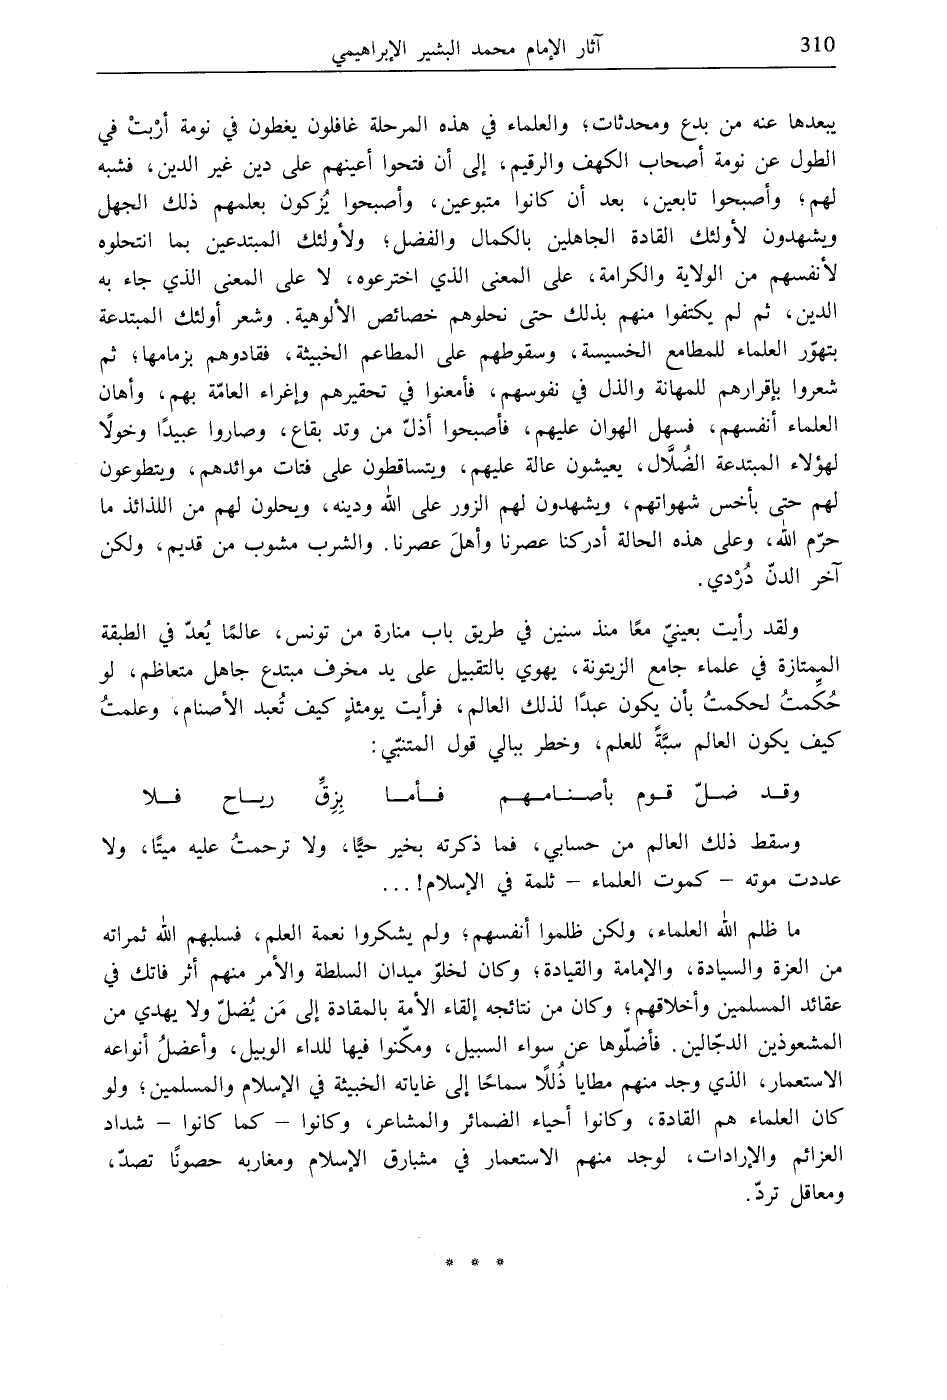 310
آثار الإمام محمد البشير الإبراهيمي
يبعدها عنه من بدع ومحدثات؛ والعلماء في هذه المرحلة غافلون يغطون في نومة أرْبتْ في
الطول عن نومة أصحاب الكهف والرقيم، إلى أن فتحوا أعينهم على دين غير الدين، فشبه
لهم؛ وأصبحوا تابعين، بعد أن كانوا متبوعين، وأصبحوا يُزكون بعلمهم ذلك الجهل
ويشهدون لأولئك القادة الجاهلين بالكمال والفضل؛ ولأولئك المبتدعين بما انتحلوه
لأنفسهم من الولاية والكرامة، على المعنى الذي اخترعوه، لا على المعنى الذي جاء به
الدين، ثم لم يكتفوا منهم بذلك حتى نحلوهم خصائص الألوهية. وشعر أولئك المبتدعة
بتهوّر العلماء للمطامع الخسيسة، وسقوطهم على المطاعم الخبيثة، فقادوهم بزمامها؛ ثم
شعروا بإقرارهم للمهانة والذل في نفوسهم، فأمعنوا في تحقيرهم وإغراء العامّة بهم، وأهان
العلماء أنفسهم، فسهل الهوان عليهم، فأصبحوا أذلّ من وتد بقاع، وصاروا عبيدًا وخولًا
لهؤلاء المبتدعة الضُلَّال، يعيشون عالة عليهم، ويتساقطون على فتات موائدهم، ويتطوعون
لهم حتى بأخس شهواتهم، ويشهدون لهم الزور على الله ودينه، ويحلون لهم من اللذائذ ما
حرّم الله، وعلى هذه الحالة أدركنا عصرنا وأهلَ عصرنا. والشرب مشوب من قديم، ولكن
آخر الدنّ دُرْدي.
ولقد رأيت بعينيّ معًا منذ سنين في طريق باب منارة من تونس، عالمًا يُعدّ في الطبقة
الممتازة في علماء جامع الزيتونة، يهوي بالتقبيل على يد مخرف مبتدع جاهل متعاظم، لو
حُكِّمتُ لحكمتُ بأن يكون عبدًا لذلك العالم، فرأيت يومئذٍ كيف تُعبد الأصنام، وعلمتُ
كيف يكون العالم سبَّةً للعلم، وخطر ببالي قول المتنبّي:
وقـد ضـلّ قـوم بأصـنـامـهـم فـأمـا بِزِقِّ ريـاح فـلا
وسقط ذلك العالم من حسابي، فما ذكرته بخير حيًّا، ولا ترحمتُ عليه ميتًا، ولا
عددت موته – كموت العلماء – ثلمة في الإسلام!...
ما ظلم الله العلماء، ولكن ظلموا أنفسهم؛ ولم يشكروا نعمة العلم، فسلبهم الله ثمراته
من العزة والسيادة، والإمامة والقيادة؛ وكان لخلوّ ميدان السلطة والأمر منهم أثر فاتك في
عقائد المسلمين وأخلاقهم؛ وكان من نتائجه إلقاء الأمة بالمقادة إلى مَن يُضلّ ولا يهدي من
المشعوذين الدجّالين. فأضلّوها عن سواء السبيل، ومكّنوا فيها للداء الوبيل، وأعضلُ أنواعه
الاستعمار، الذي وجد منهم مطايا ذُللًا سماحًا إلى غاياته الخبيثة في الإسلام والمسلمين؛ ولو
كان العلماء هم القادة، وكانوا أحياء الضمائر والمشاعر، وكانوا – كما كانوا – شداد
العزائم والإرادات، لوجد منهم الاستعمار في مشارق الإسلام ومغاربه حصونًا تصدّ،
ومعاقل تردّ.
* * *